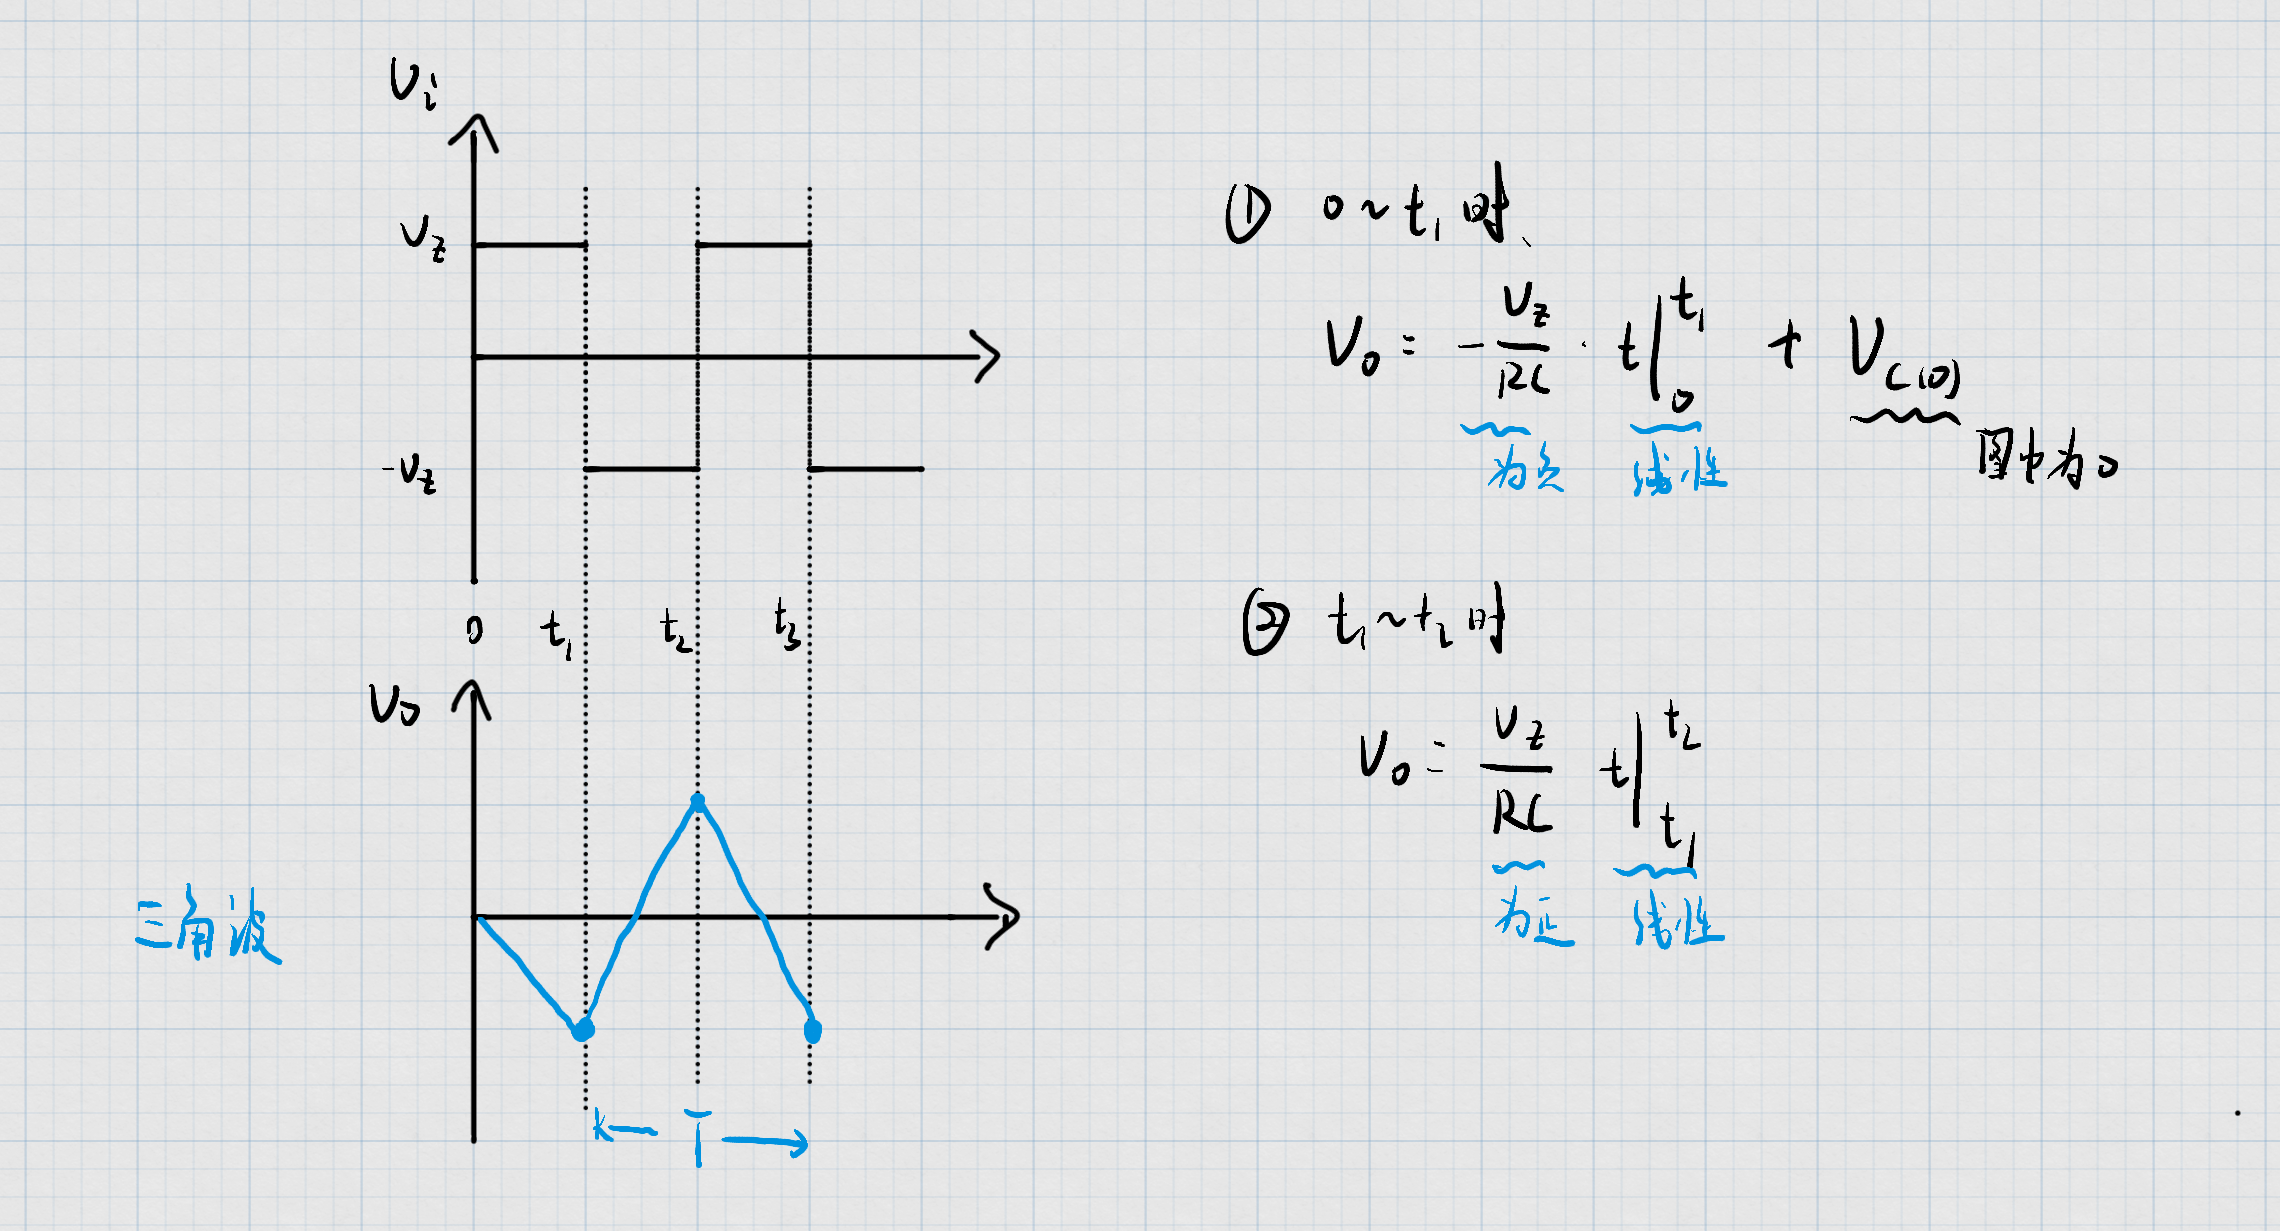 Vi
Vz
-Vz
0 t1 t2 t3
Vo
三角波
T
① 0~t1 时、
Vo = -Vz/RC · t|0 t1 + Vc(0)
为负 线性 图中为0
② t1~t2 时
Vo = Vz/RC t|t1 t2
为正 线性